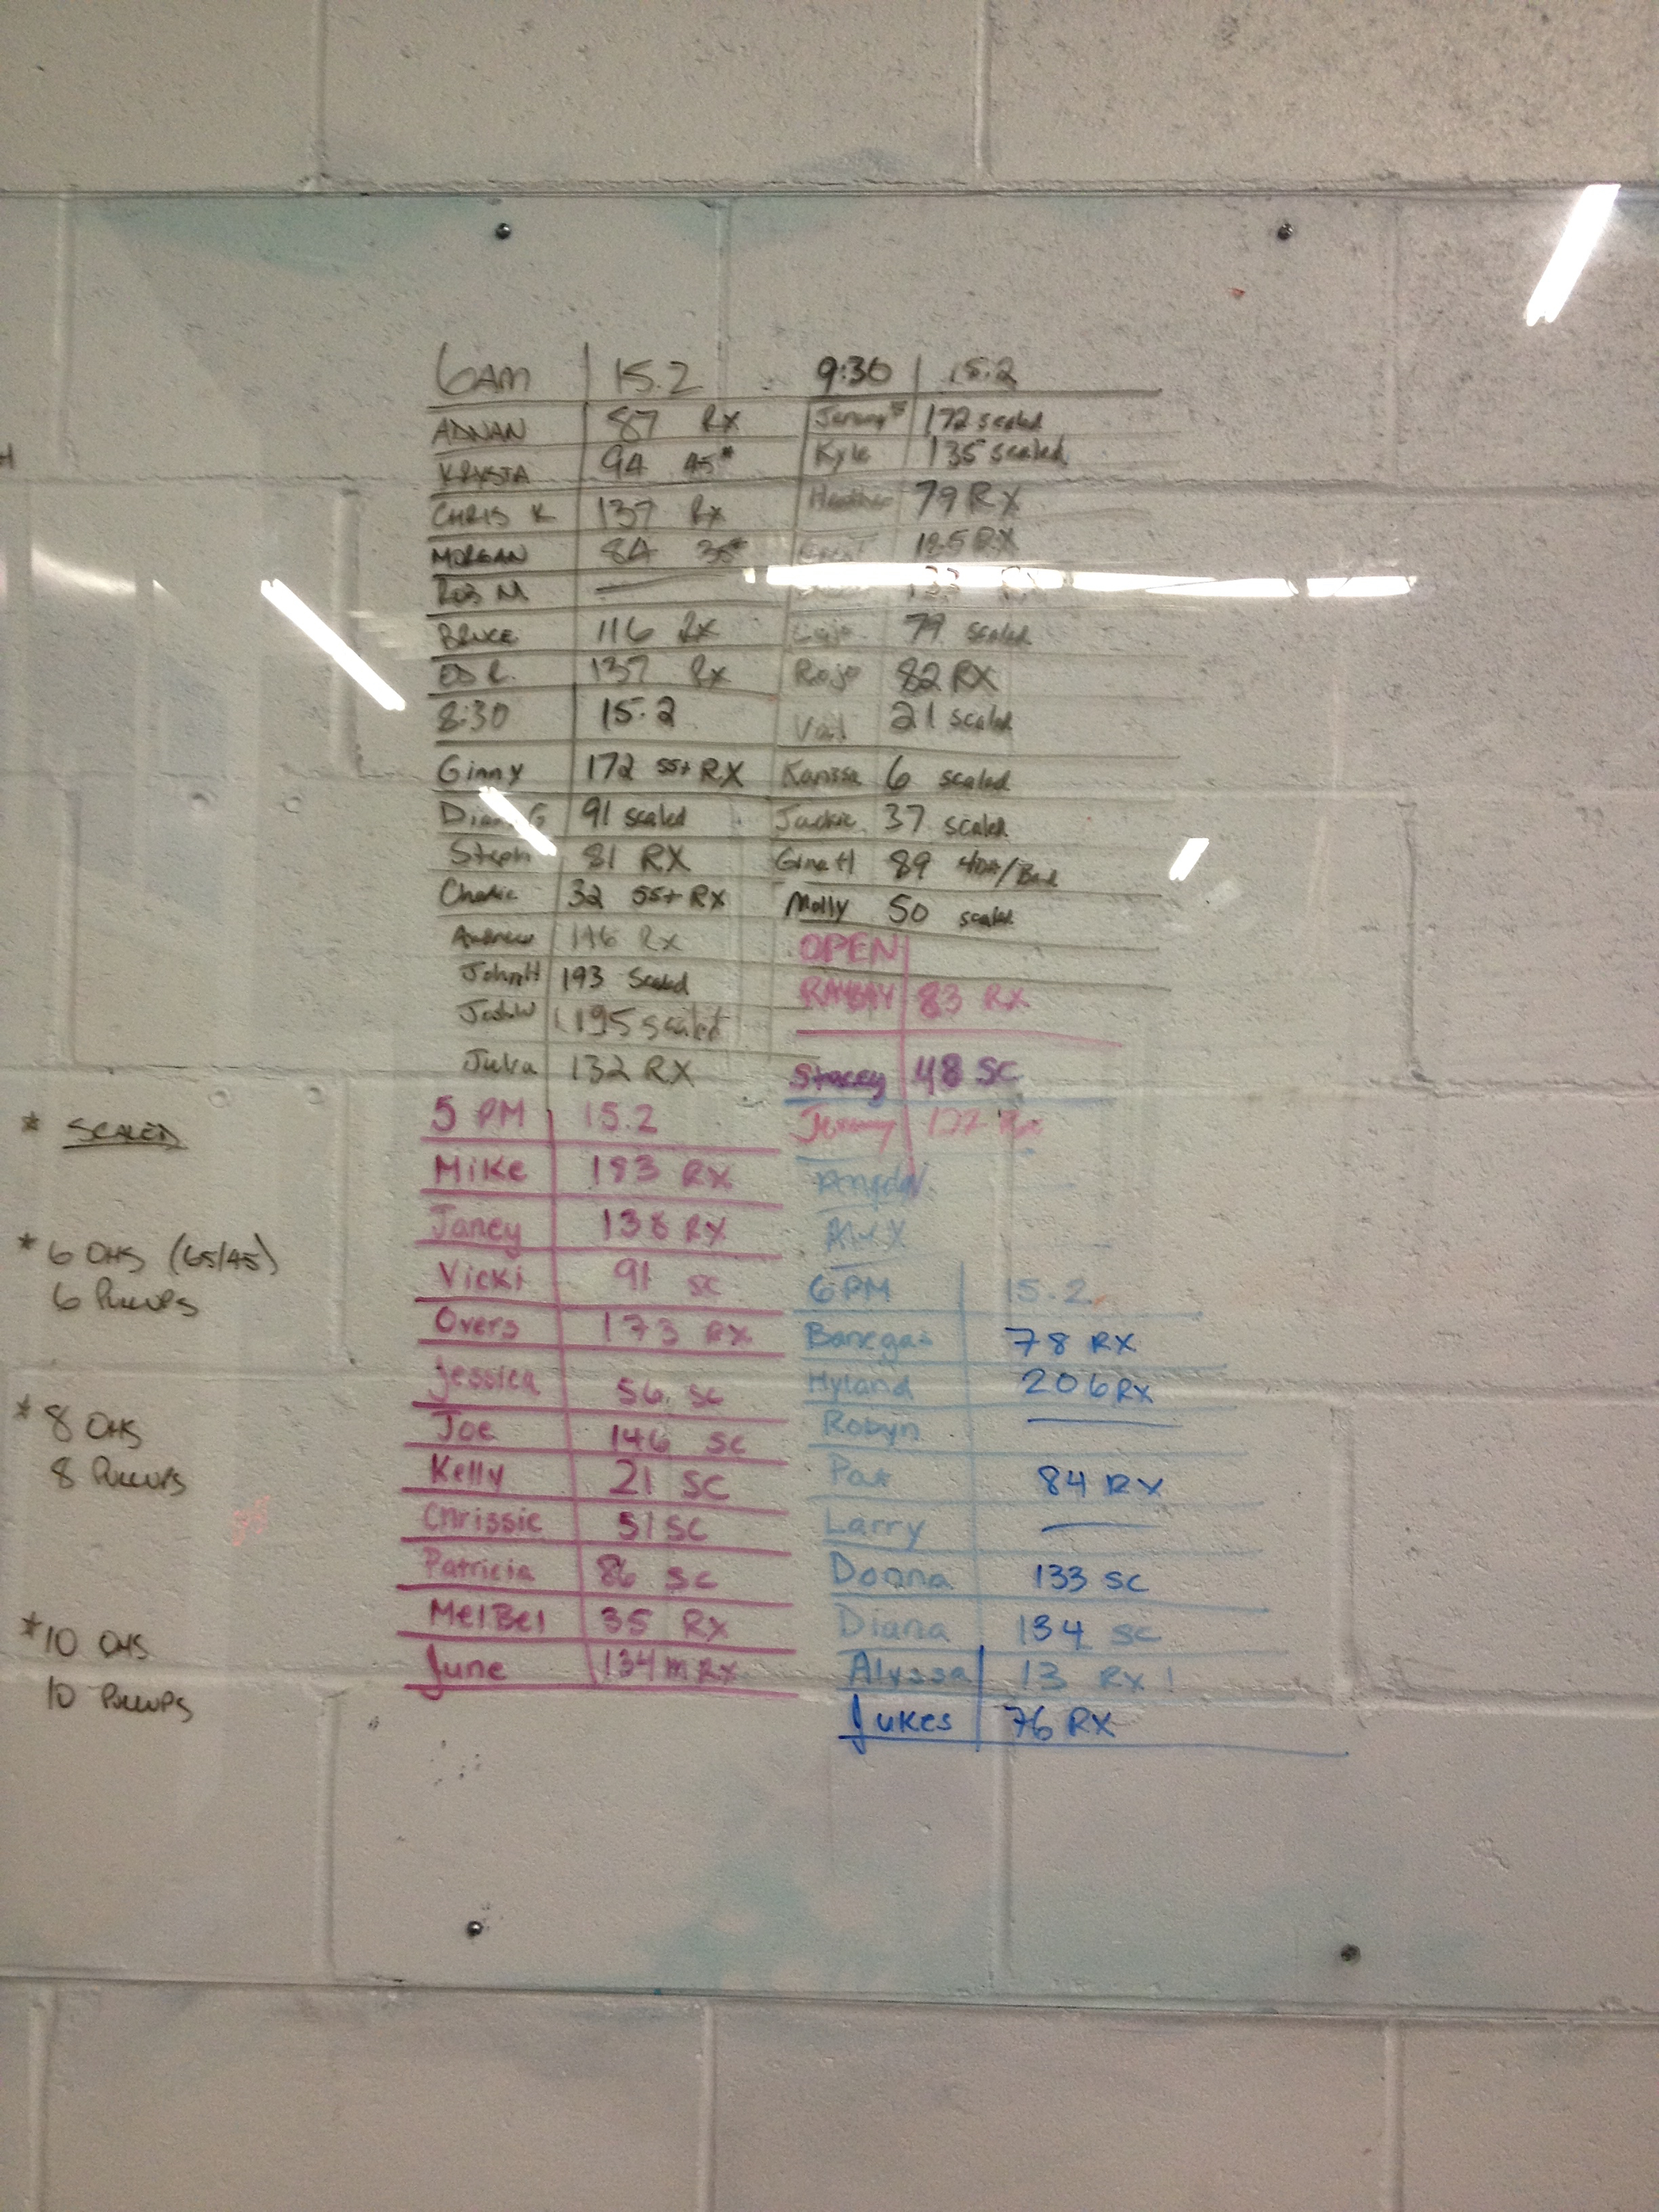 6AM 15.2
ADNAN 87 RX
KRYSTA 94 45#
CHRIS K 137 Rx
MORGAN 84 35#
ROB M —
BRUCE 116 Rx
ED R. 137 Rx
8:30 15.2
Ginny 172 55+ RX
Diana G 91 scaled
Steph 81 RX
Charlie 32 55+ RX
Andrew 146 Rx
JohnH 193 Scaled
JoshW 195 scaled
Julia 132 RX
5 PM 15.2
Mike 193 RX
Janey 138 RX
Vicki 91 SC
Overs 173 RX
Jessica 56 SC
Joe 146 SC
Kelly 21 SC
Chrissie 51 SC
Patricia 86 SC
MelBel 35 RX
June 134 m RX
9:30 15.2
172 scaled
Kyle 135 scaled
Heather 79 RX
135 RX
79 scaled
Rojo 82 RX
Val 21 scaled
Karissa 6 scaled
Jackie 37 scaled
Gina H 89
Molly 50 scaled
OPEN
RAMSAY 83 RX
Stacey 48 SC
Jeremy 177 Rx
Alex
6 PM 15.2
Banegas 78 RX
Hyland 206 RX
Robyn —
Pat 84 RX
Larry —
Donna 133 SC
Diana 134 SC
Alyssa 13 RX!
Jukes 76 RX
* SCALED
* 6 OHS (65/45)
6 PULLUPS
* 8 OHS
8 PULLUPS
* 10 OHS
10 PULLUPS